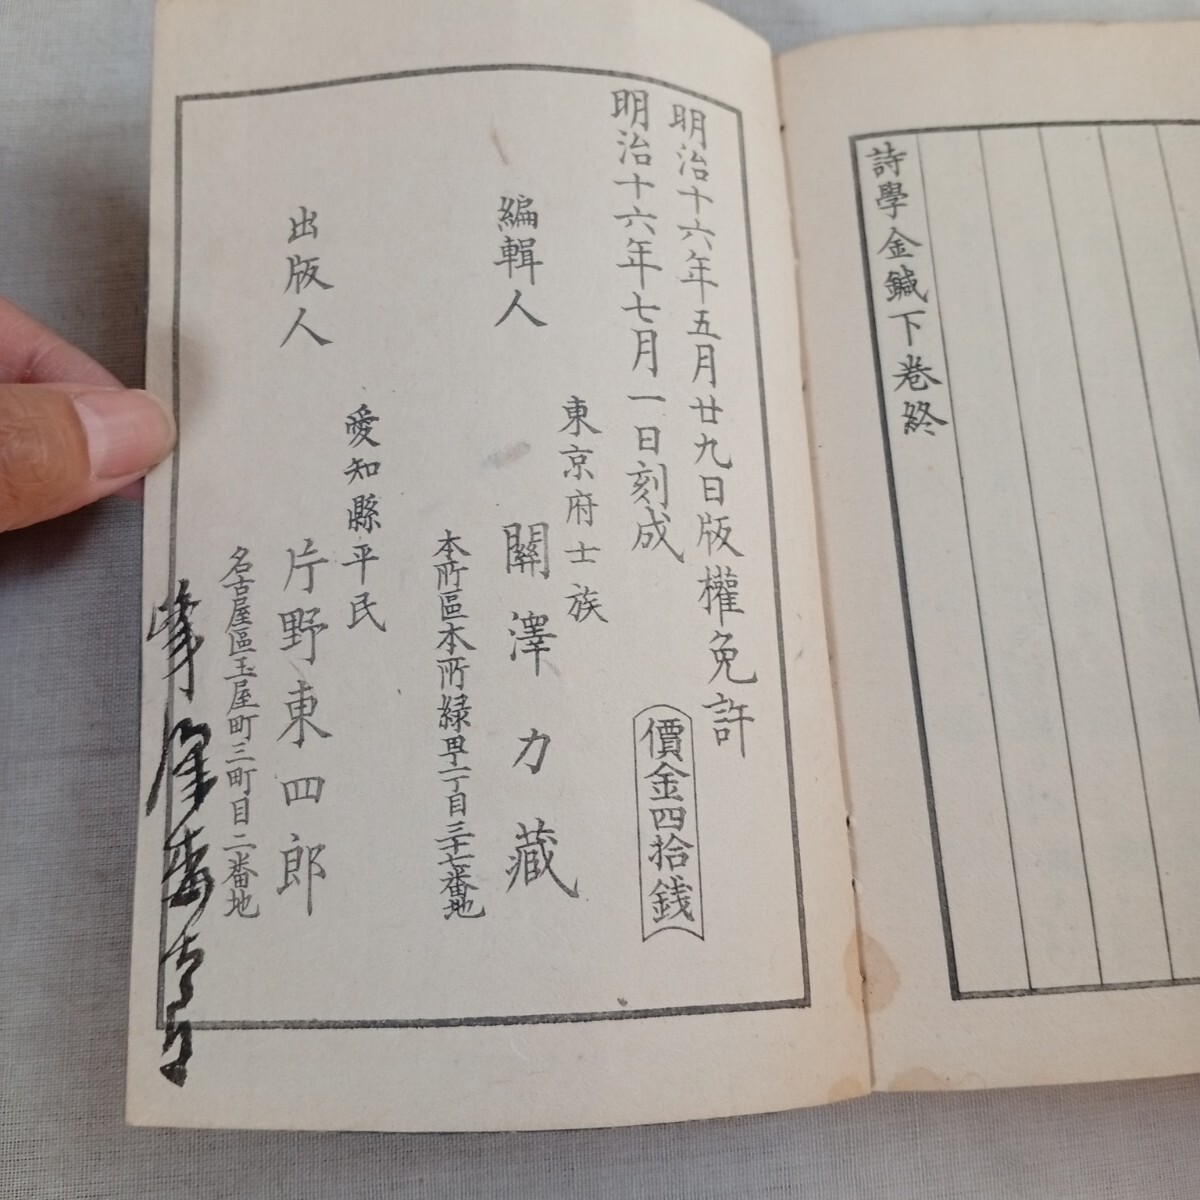 詩學金鍼下卷終
明治十六年五月廿九日版權免許
明治十六年七月一日刻成
價金四拾銭
東京府士族
編輯人 關澤力藏
本所區本所緑町一丁目三十七番地
愛知縣平民
出版人 片野東四郎
名古屋區玉屋町三町目二番地